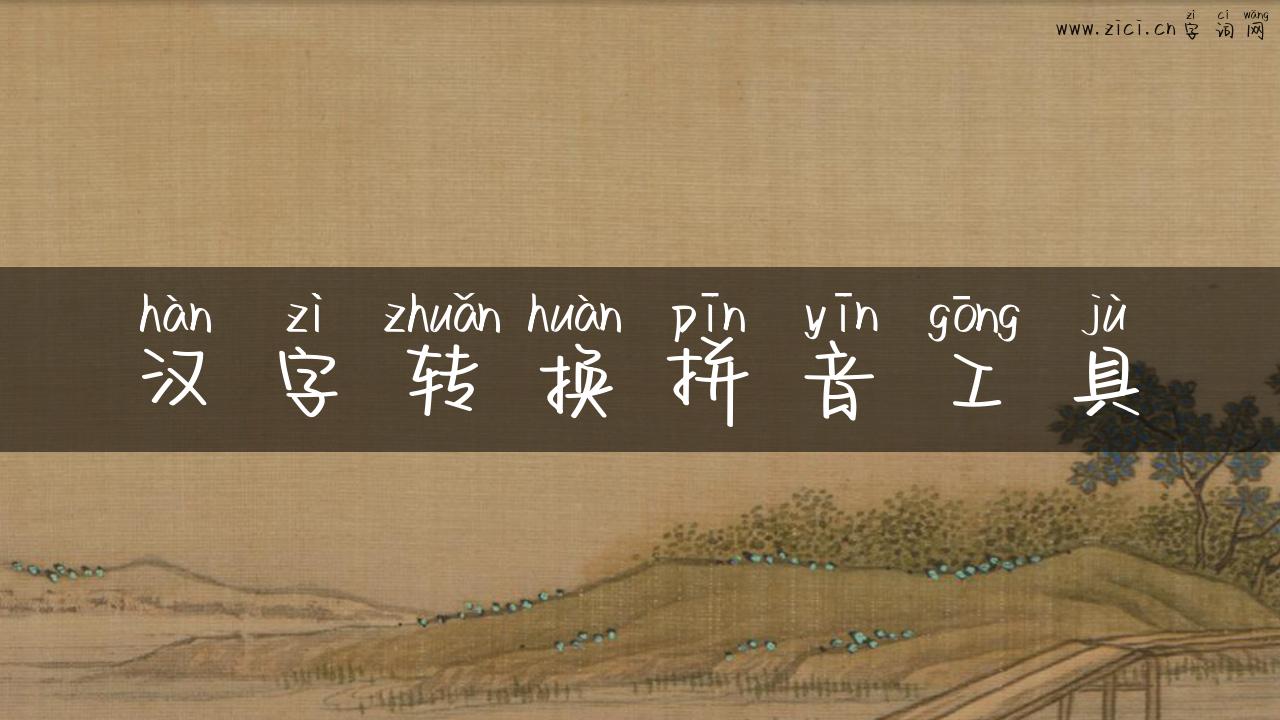 zì cí wǎng
www.zici.cn字词网
hàn zì zhuǎn huàn pīn yīn gōng jù
汉字转换拼音工具